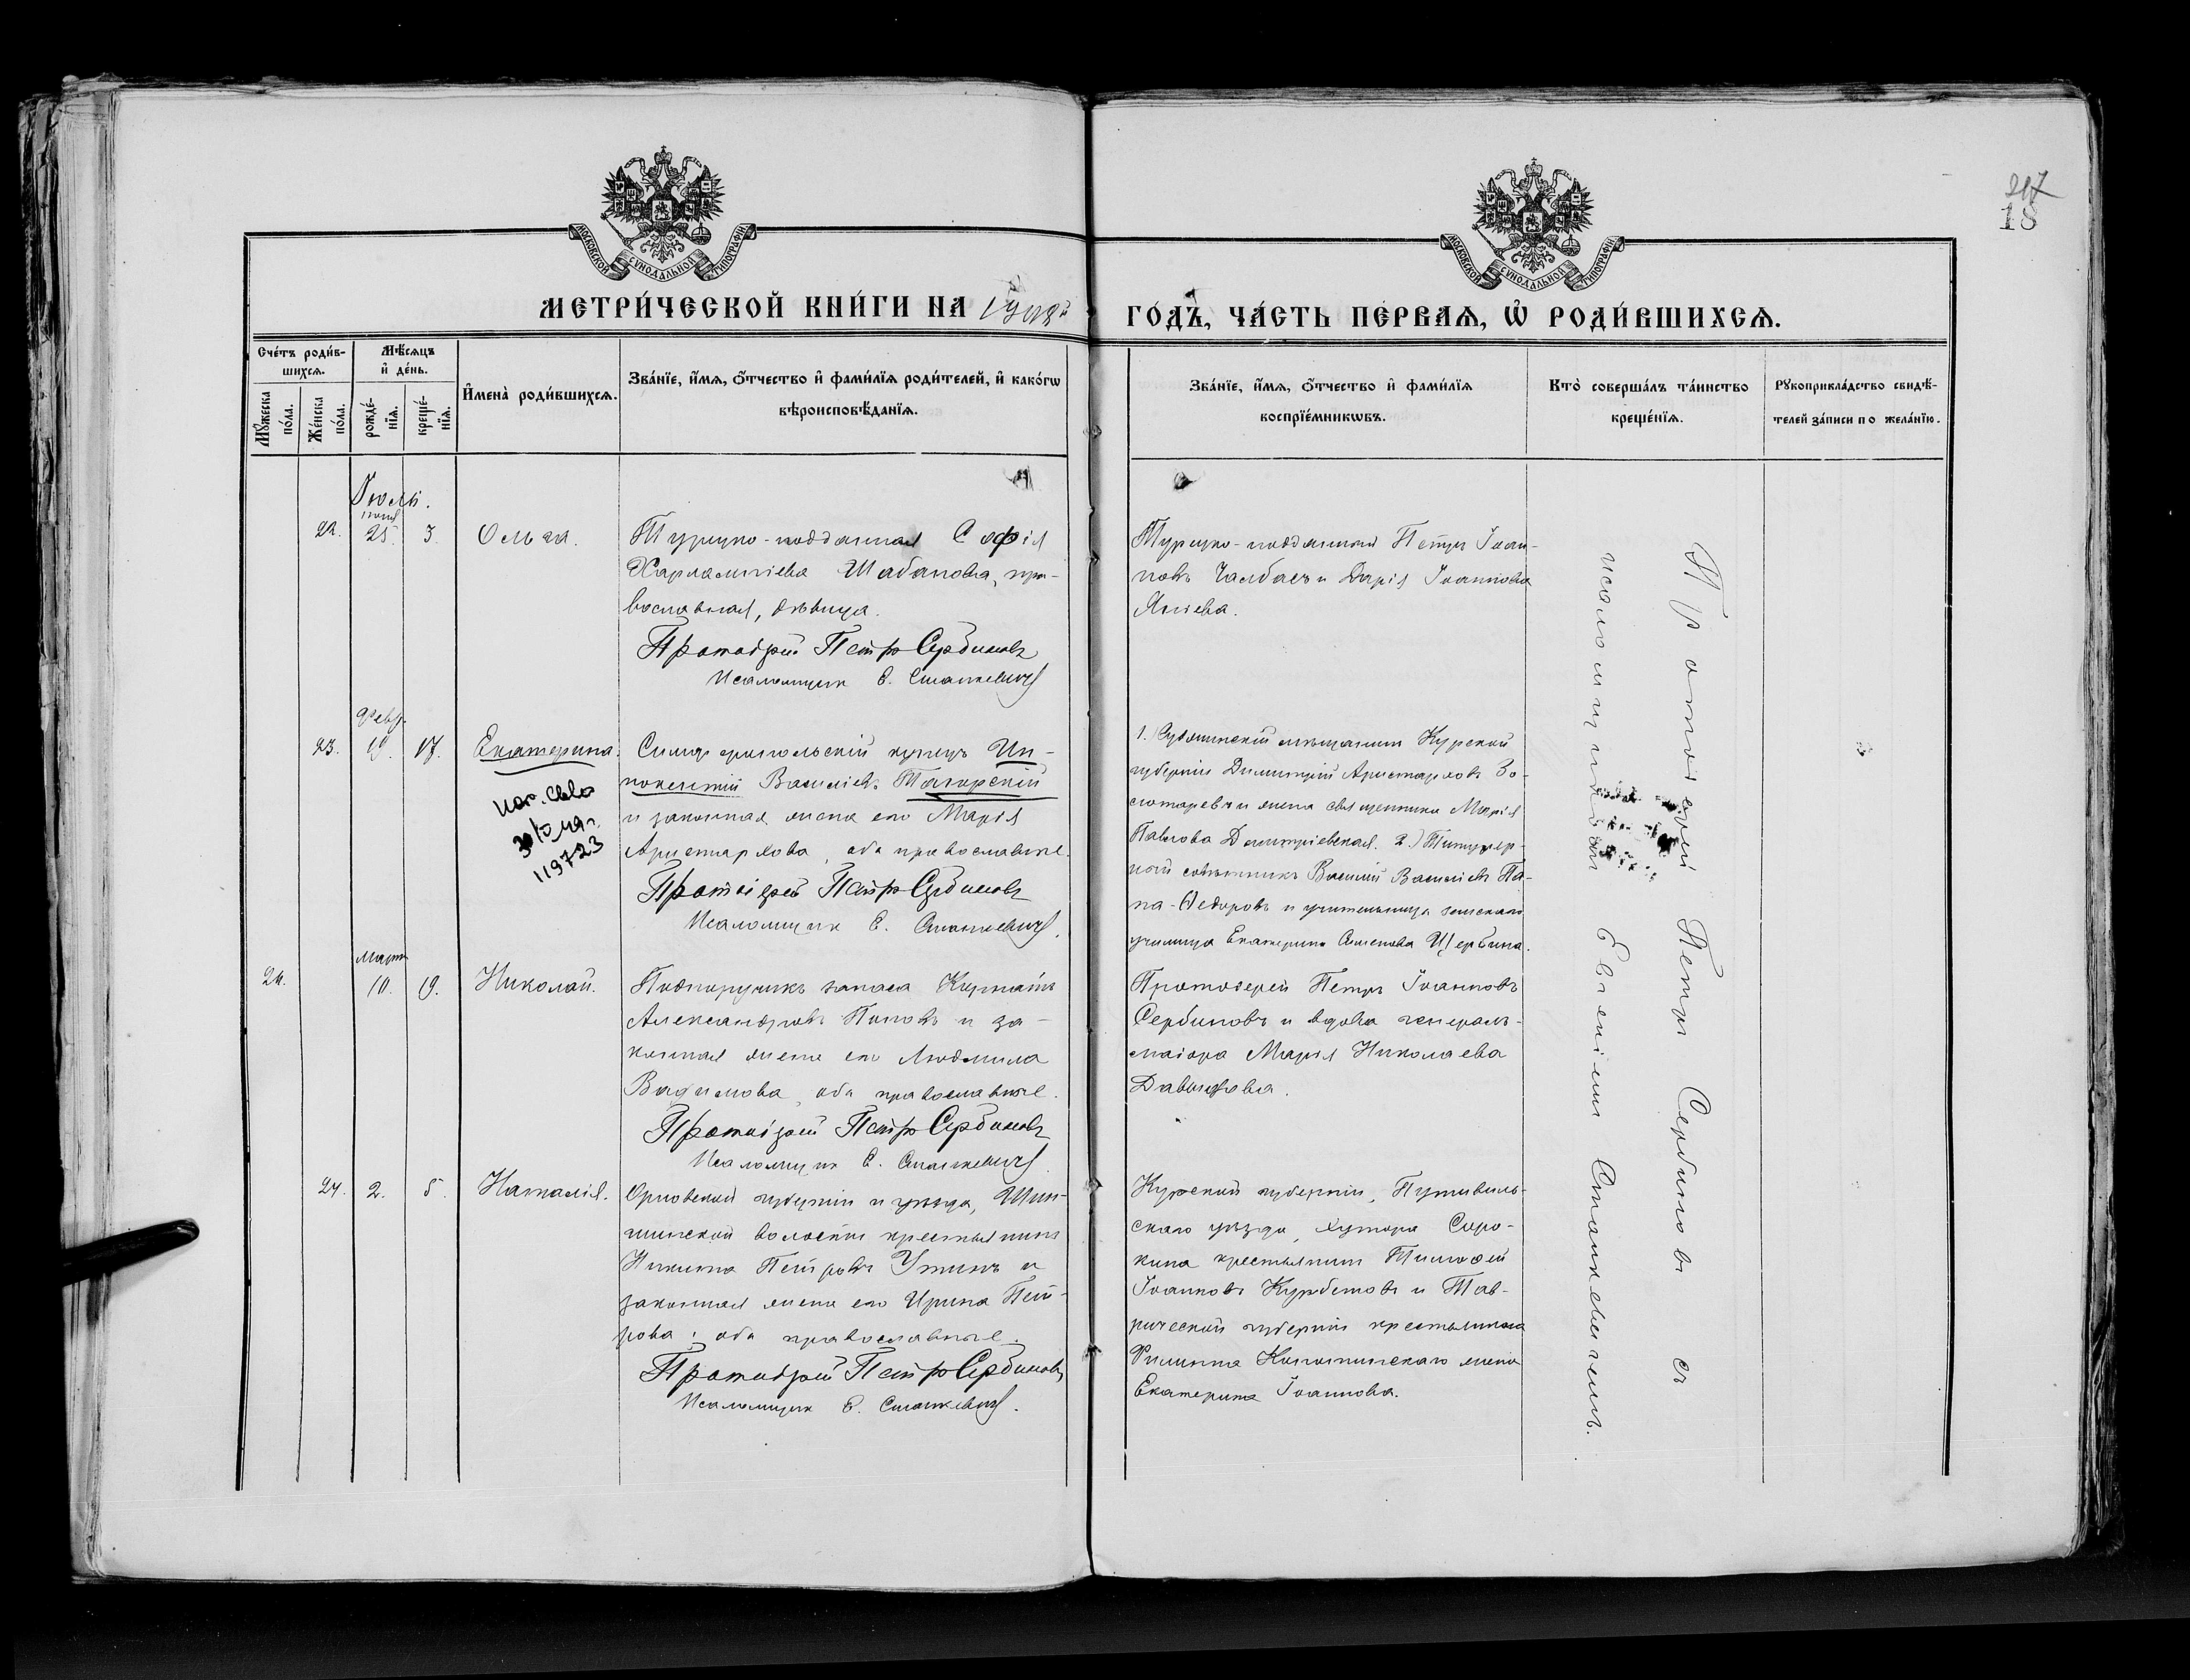 217
18
МОСКОВСКОЙ СѴНОДАЛЬНОЙ ТИПОГРАФІИ
МОСКОВСКОЙ СѴНОДАЛЬНОЙ ТИПОГРАФІИ
МЕТРИ́ЧЕСКОЙ КНИ́ГИ НА
ГО́ДЪ, ЧА́СТЬ ПЕ́РВАѦ, Ѡ҆ РОДИ́ВШИХСѦ.
Сче́тъ роди́в-
шихсѧ.
Мꙋ́жеска по́ла.
Же́нска по́ла.
Мѣ́сѧцъ
и҆ де́нь.
рожде́-
нїѧ.
креще́-
нїѧ.
И҆мена̀ роди́вшихсѧ.
Зва́нїе, и҆́мѧ, ѻ҆́тчество и҆ фами́лїѧ роди́телей, и҆ како́гѡ
вѣроисповѣ́данїѧ.
Зва́нїе, и҆́мѧ, ѻ҆́тчество и҆ фами́лїѧ
воспрїе́мникѡвъ.
Кто̀ соверша́лъ та́инство
креще́нїѧ.
Рꙋкоприкла́дство свидѣ́-
телей за́писи по жела́нїю.
Іюль.
22. 25. 3. Ольга.
Турецко-подданная Софія
Харлампіева Шабанова, пра-
вославная, дѣвица.
Протоіерей Петръ Сербиновъ
Псаломщик Е. Станкевичъ
Турецко-подданный Петръ Іоан-
новъ Чалбаев и Дарія Іоаннова
Яніева.
Февр.
23. 19. 17. Екатерина.
30/5 49 г.
119723
Симферопольскій купецъ Ин-
нокентій Василіевъ Тагорскій
и законная жена его Марія
Аристархова, оба православные.
Протоіерей Петръ Сербиновъ
Псаломщик Е. Станкевичъ.
1. мѣщанинъ Курской
губерніи Димитрій Аристархов Зо-
лотаревъ и жена священника Марія
Павлова Димитріевская. 2.) Титуляр-
ный совѣтникъ Василій Василіевъ Па-
па-Ѳедоровъ и учительница земскаго
училища Екатерина Семенова Щербина.
Мартъ
10. 19. Николай.
Подпоручикъ запаса
Александровъ Поповъ и за-
конная жена его Людмила
Вадимова, оба православные.
Протоіерей Петръ Сербиновъ
Псаломщик Е. Станкевичъ.
Протоіерей Петръ Іоанновъ
Сербиновъ и вдова генералъ-
маіора Марія Николаева
Давыдова.
24. 2. 5. Наталія.
Орловской губерніи и уѣзда,
волости крестьянинъ
Никита Петровъ Утинъ и
законная жена его Ирина Пет-
рова; оба православные.
Протоіерей Петръ Сербиновъ
Псаломщик Е. Станкевичъ.
Курской губерніи, Путивль-
скаго уѣзда, хутора Соро-
кина крестьянин Тимоѳей
Іоанновъ Курбетовъ и Тав-
рической губерніи крестьянина
Филиппа жена
Екатерина Іоаннова.
Протоіерей Петръ Сербиновъ съ
псаломщикомъ Евгеніемъ Станкевичемъ.